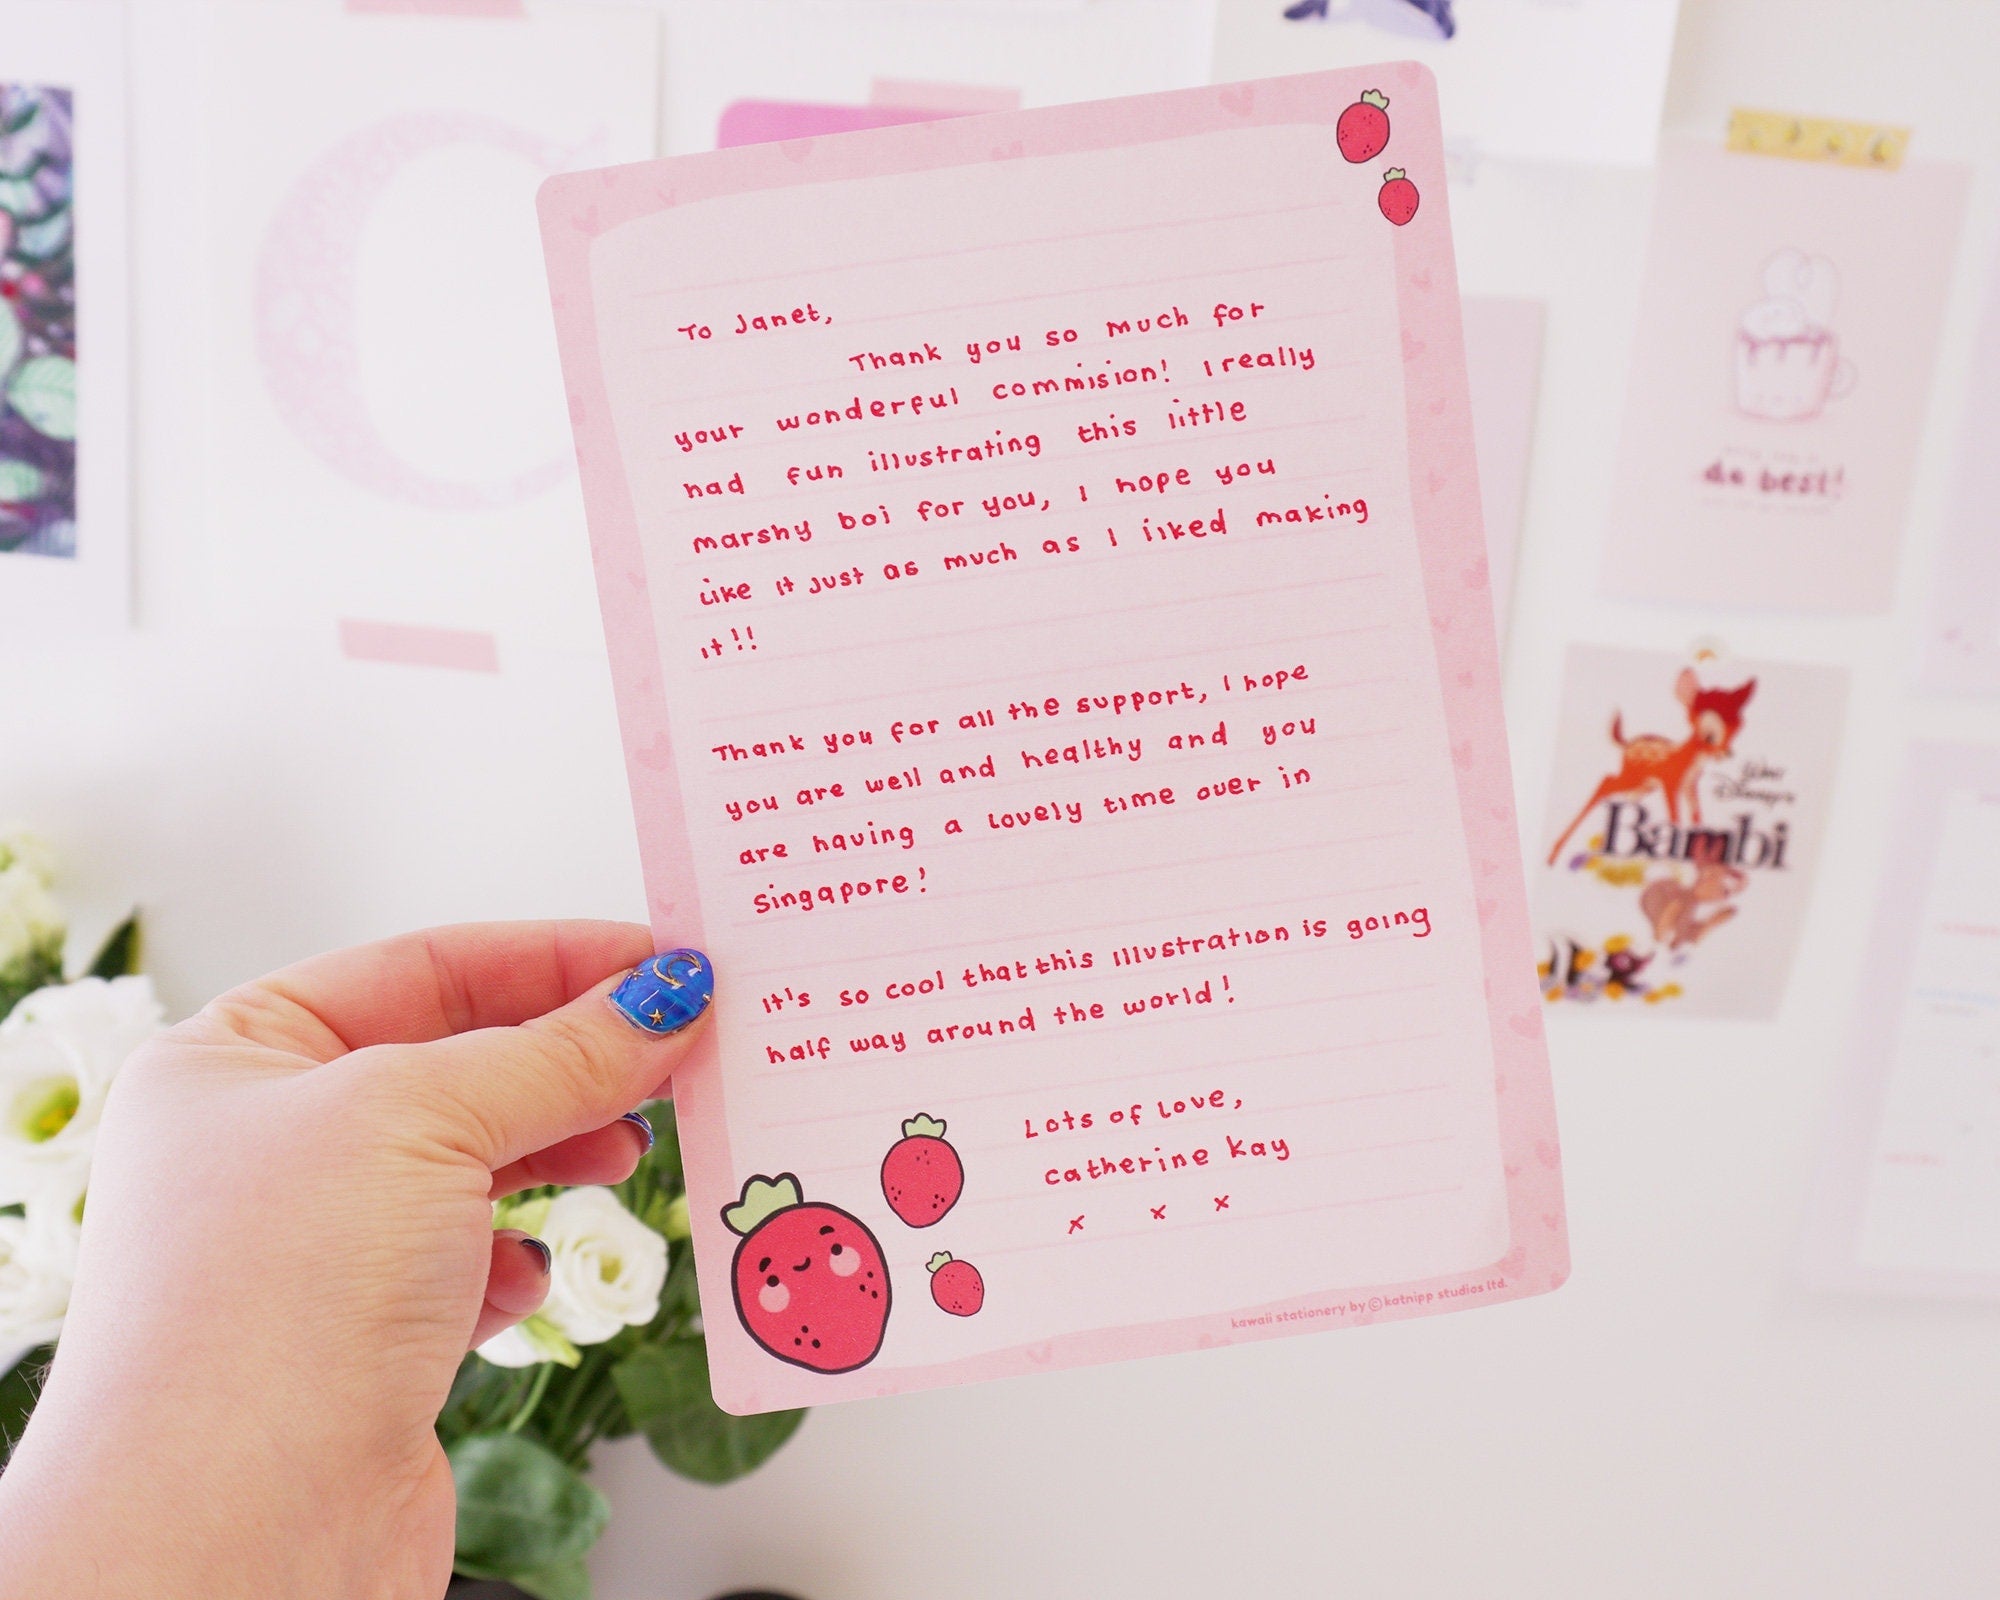 To Janet,
Thank you so much for
your wonderful commision! I really
had fun illustrating this little
marshy boi for you, I hope you
Like it just as much as I liked making
it!!
Thank you for all the support, I hope
you are well and healthy and you
are having a lovely time over in
Singapore!
It's so cool that this illustration is going
half way around the world!
Lots of Love,
Catherine Kay
x x x
kawaii stationery by © katnipp studios ltd.
C
do best!
Walt
Disney's
Bambi